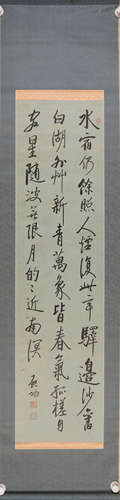 水宿仍餘照人煙復此亭驛邊沙舊
白湖外草新青萬象皆春氣孤槎自
客星隨波無限月的〻近南溟
啟功